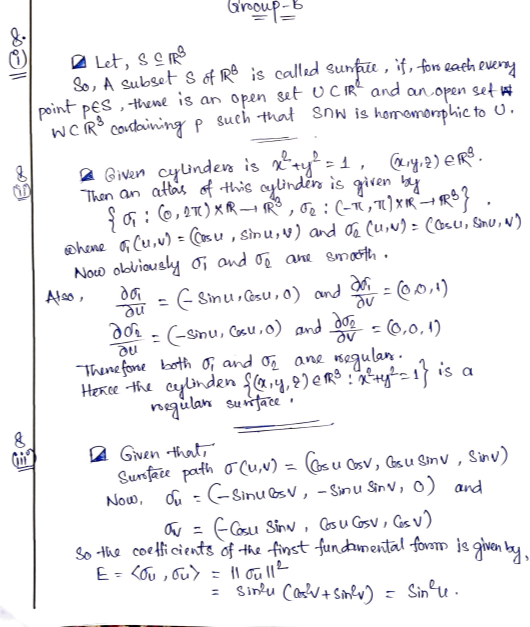 Group-B
8.
(i) Let, S ⊆ ℝ³
So, A subset S of ℝ³ is called surface, if, for each every
point p∈S, there is an open set U⊂ℝ² and an open set
W⊂ℝ³ containing p such that S∩W is homomorphic to U.
8
(ii) Given cylinder is x²+y²=1, (x,y,z)∈ℝ³.
Then an atlas of this cylinder is given by
{σ₁ : (0,2π)×ℝ→ℝ³, σ₂ : (-π,π)×ℝ→ℝ³}.
where σ₁(u,v) = (Cosu, Sinu, v) and σ₂(u,v) = (Cosu, Sinu, v)
Now obviously σ₁ and σ₂ are smooth.
Also, ∂σ₁/∂u = (-Sinu, Cosu, 0) and ∂σ₁/∂v = (0,0,1)
∂σ₂/∂u = (-Sinu, Cosu, 0) and ∂σ₂/∂v = (0,0,1)
Therefore both σ₁ and σ₂ are regular.
Hence the cylinder {(x,y,z)∈ℝ³ : x²+y²=1} is a
regular surface.
8
(iii) Given that,
Surface path σ(u,v) = (Cosu Cosv, Cosu Sinv, Sinv)
Now, σu = (-Sinu Cosv, -Sinu Sinv, 0) and
σv = (-Cosu Sinv, Cosu Cosv, Cosv)
So the coefficients of the first fundamental form is given by,
E = <σu, σu> = ||σu||²
= Sin²u (Cos²v + Sin²v) = Sin²u.